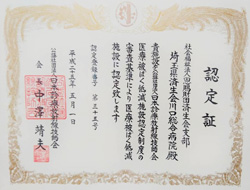 認定証
社会福祉法人恩賜財団済生会支部
埼玉県済生会川口総合病院殿
貴施設を公益社団法人日本診療放射線技師会
医療被ばく低減施設認定制度の
審査基準により医療被ばく低減
施設に認定致します
認定登録番号 第三十五号
平成二十五年五月一日
公益社団法人日本診療放射線技師会
会長 中澤靖夫